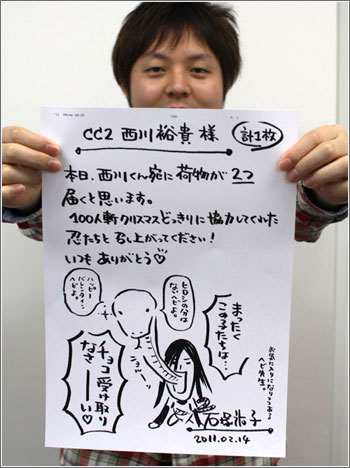 CC2 西川裕貴 様
計1枚
本日、西川くん宛に荷物が2つ
届くと思います。
100人斬クリスマスどっきりに協力してくれた
忍たちと召し上がってください!
いつもありがとう♡
まったく
この子たちは…
ヒロシの分は
ないヘビよ。
ハッピー
バレンタイン
ヘビよ。
チョコ受け取り
なさーい♡
お気に入りになりつつある
ヘビ先生。
2011.02.14